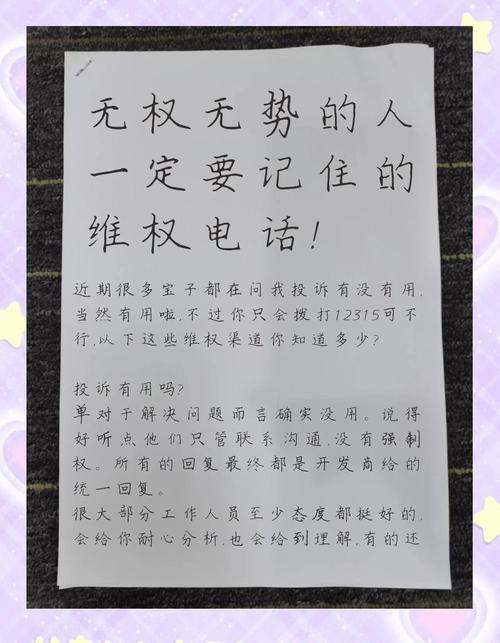 无权无势的人
一定要记住的
维权电话!
近期很多宝子都在问我投诉有没有用,
当然有用啦,不过你只会拨打12315可不
行,以下这些维权渠道你知道多少?
投诉有用吗?
单对于解决问题而言确实没用。说得
好听点他们只管联系沟通,没有强制
权。所有的回复最终都是开发商给的
统一回复。
很大部分工作人员至少态度都挺好的,
会给你耐心分析,也会给到理解,有的还